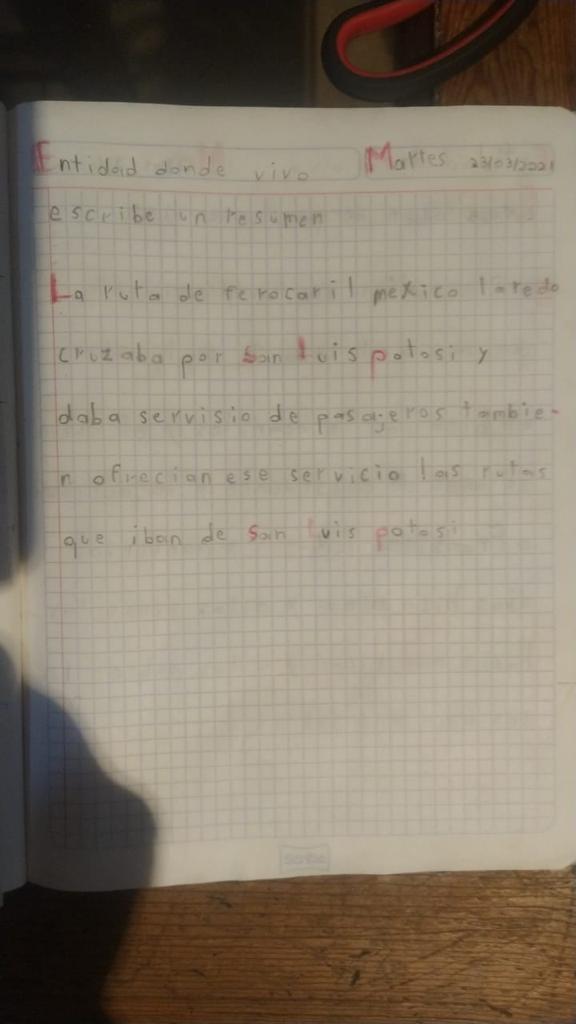 Entidad donde vivo Martes 23/03/2021
escribe un resumen
La ruta de ferocaril mexico laredo
cruzaba por san Luis potosi y
daba servisio de pasajeros tambie-
n ofrecian ese servicio las rutas
que iban de San Luis potosi
Scribe